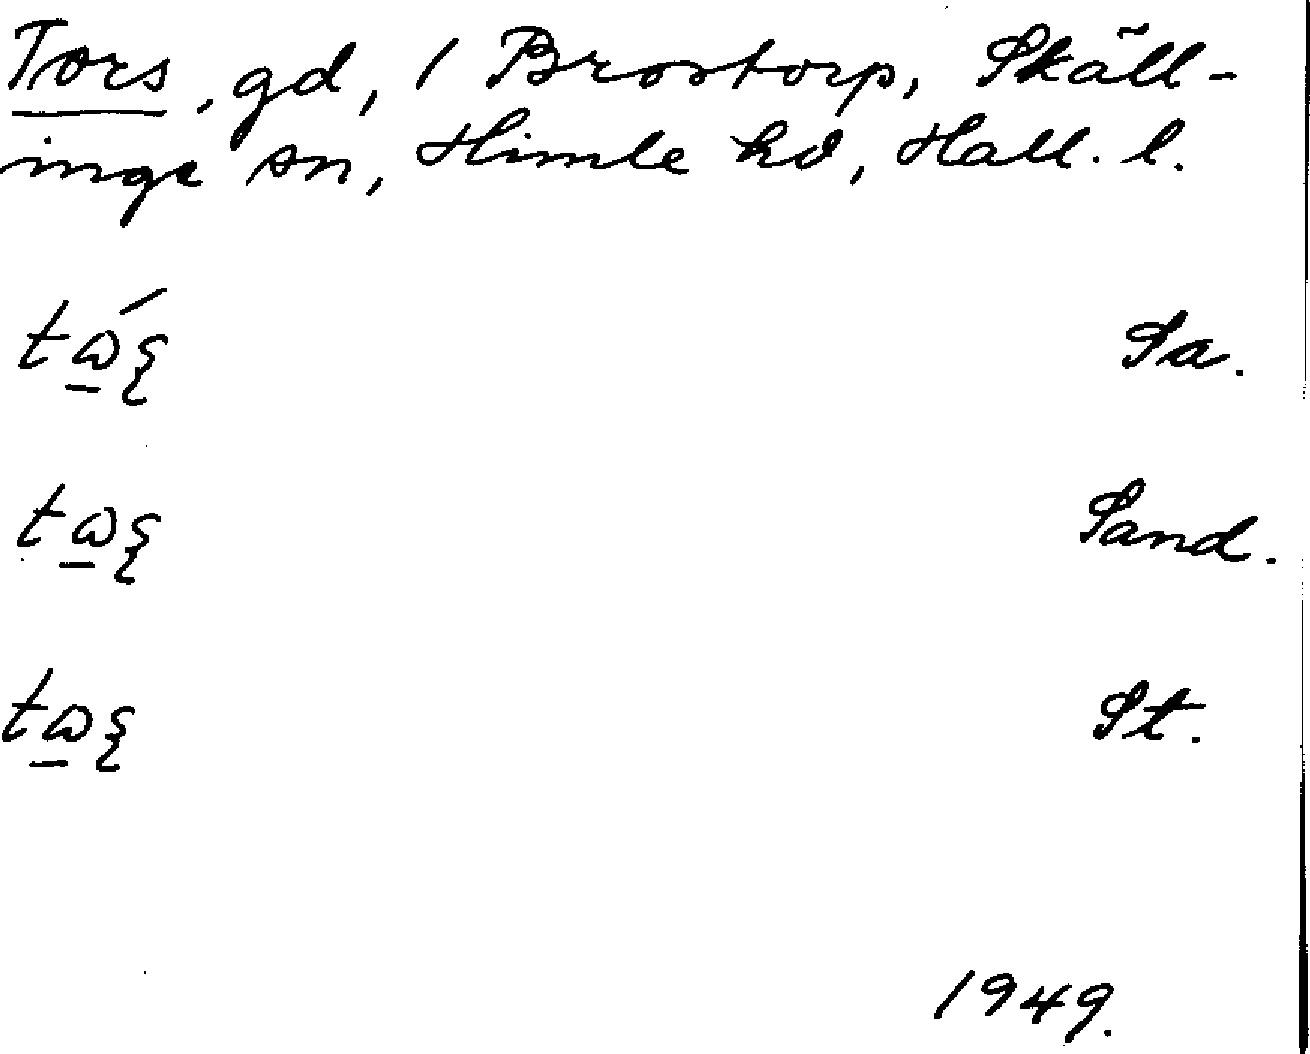 Tors, gd, 1 Brostorp, Skäll-
inge sn, Himle hd, Hall. l.
tώ̲ʂ Sa.
tω̲ʂ Sand.
tω̲ʂ St.
1949.